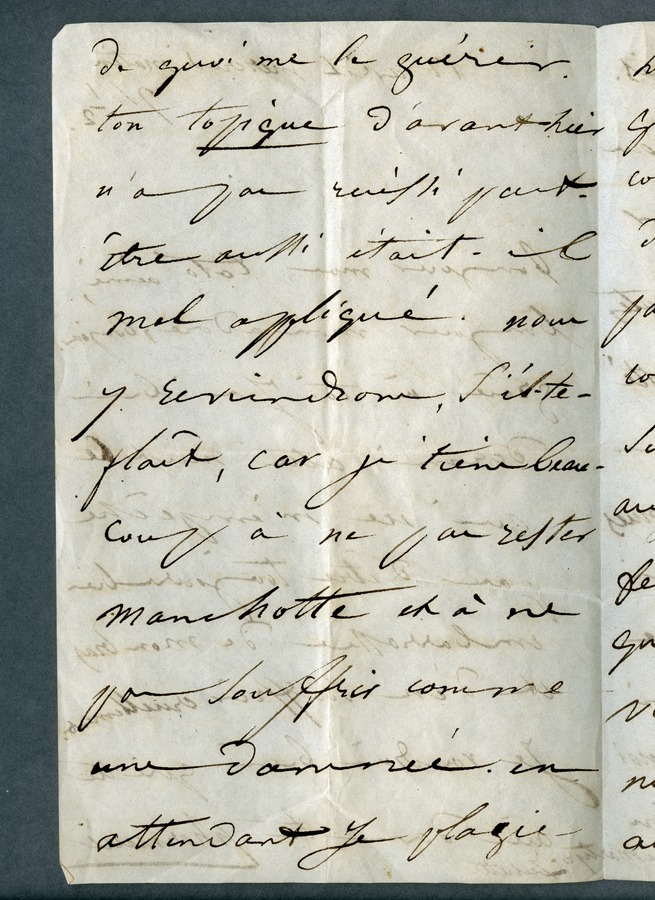 de quoi me le guérir.
ton topique d'avant-hier
n'a pas réussi peut-
être aussi était-il
mal appliqué. nous
y reviendrons, s'il-te-
plaît, car je tiens beau-
coup à ne pas rester
manchotte et à ne
pas souffrir comme
une damnée. en
attendant je